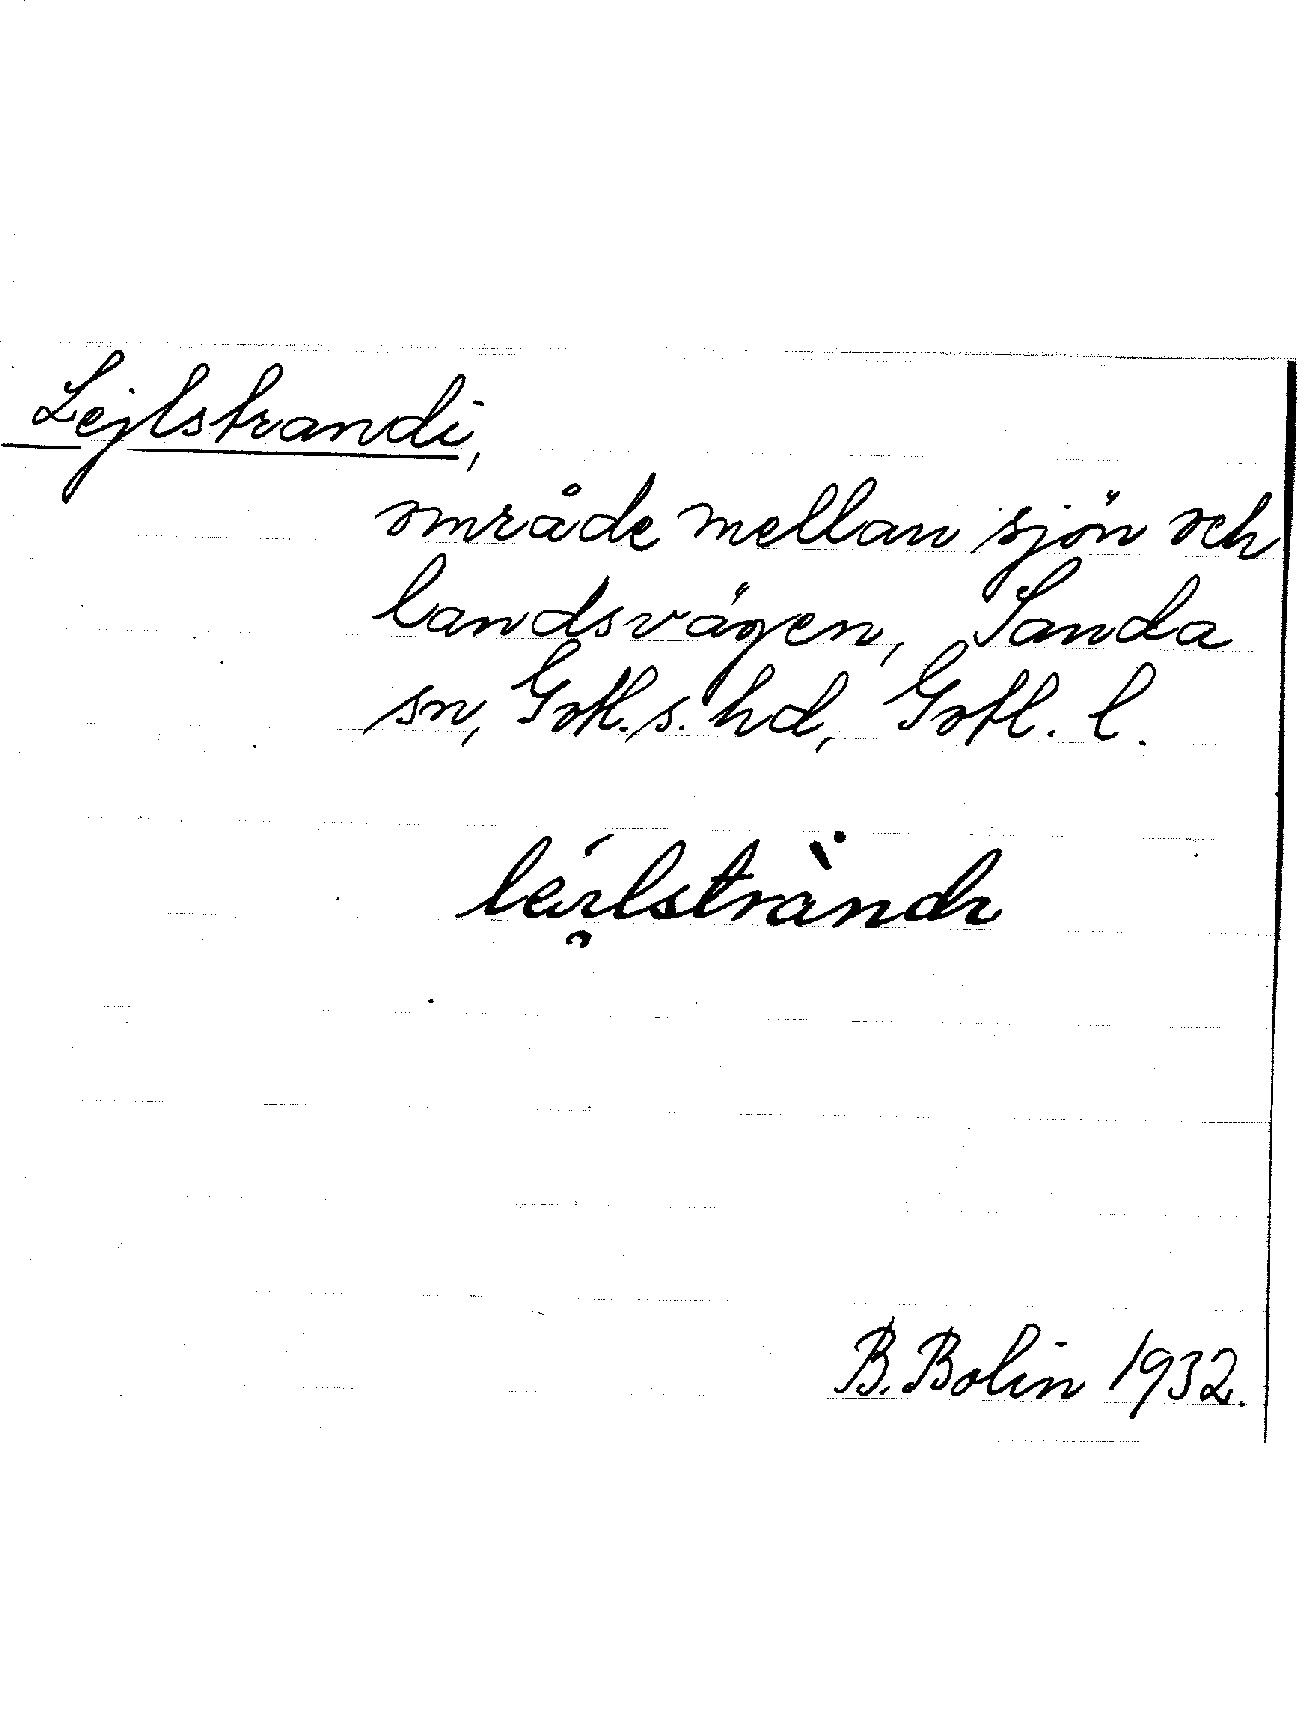 Lejlstrandi,
område mellan sjön och
landsvägen, Sanda
sn, Gotl. s. hd, Gotl. l.
B. Bolin 1932.